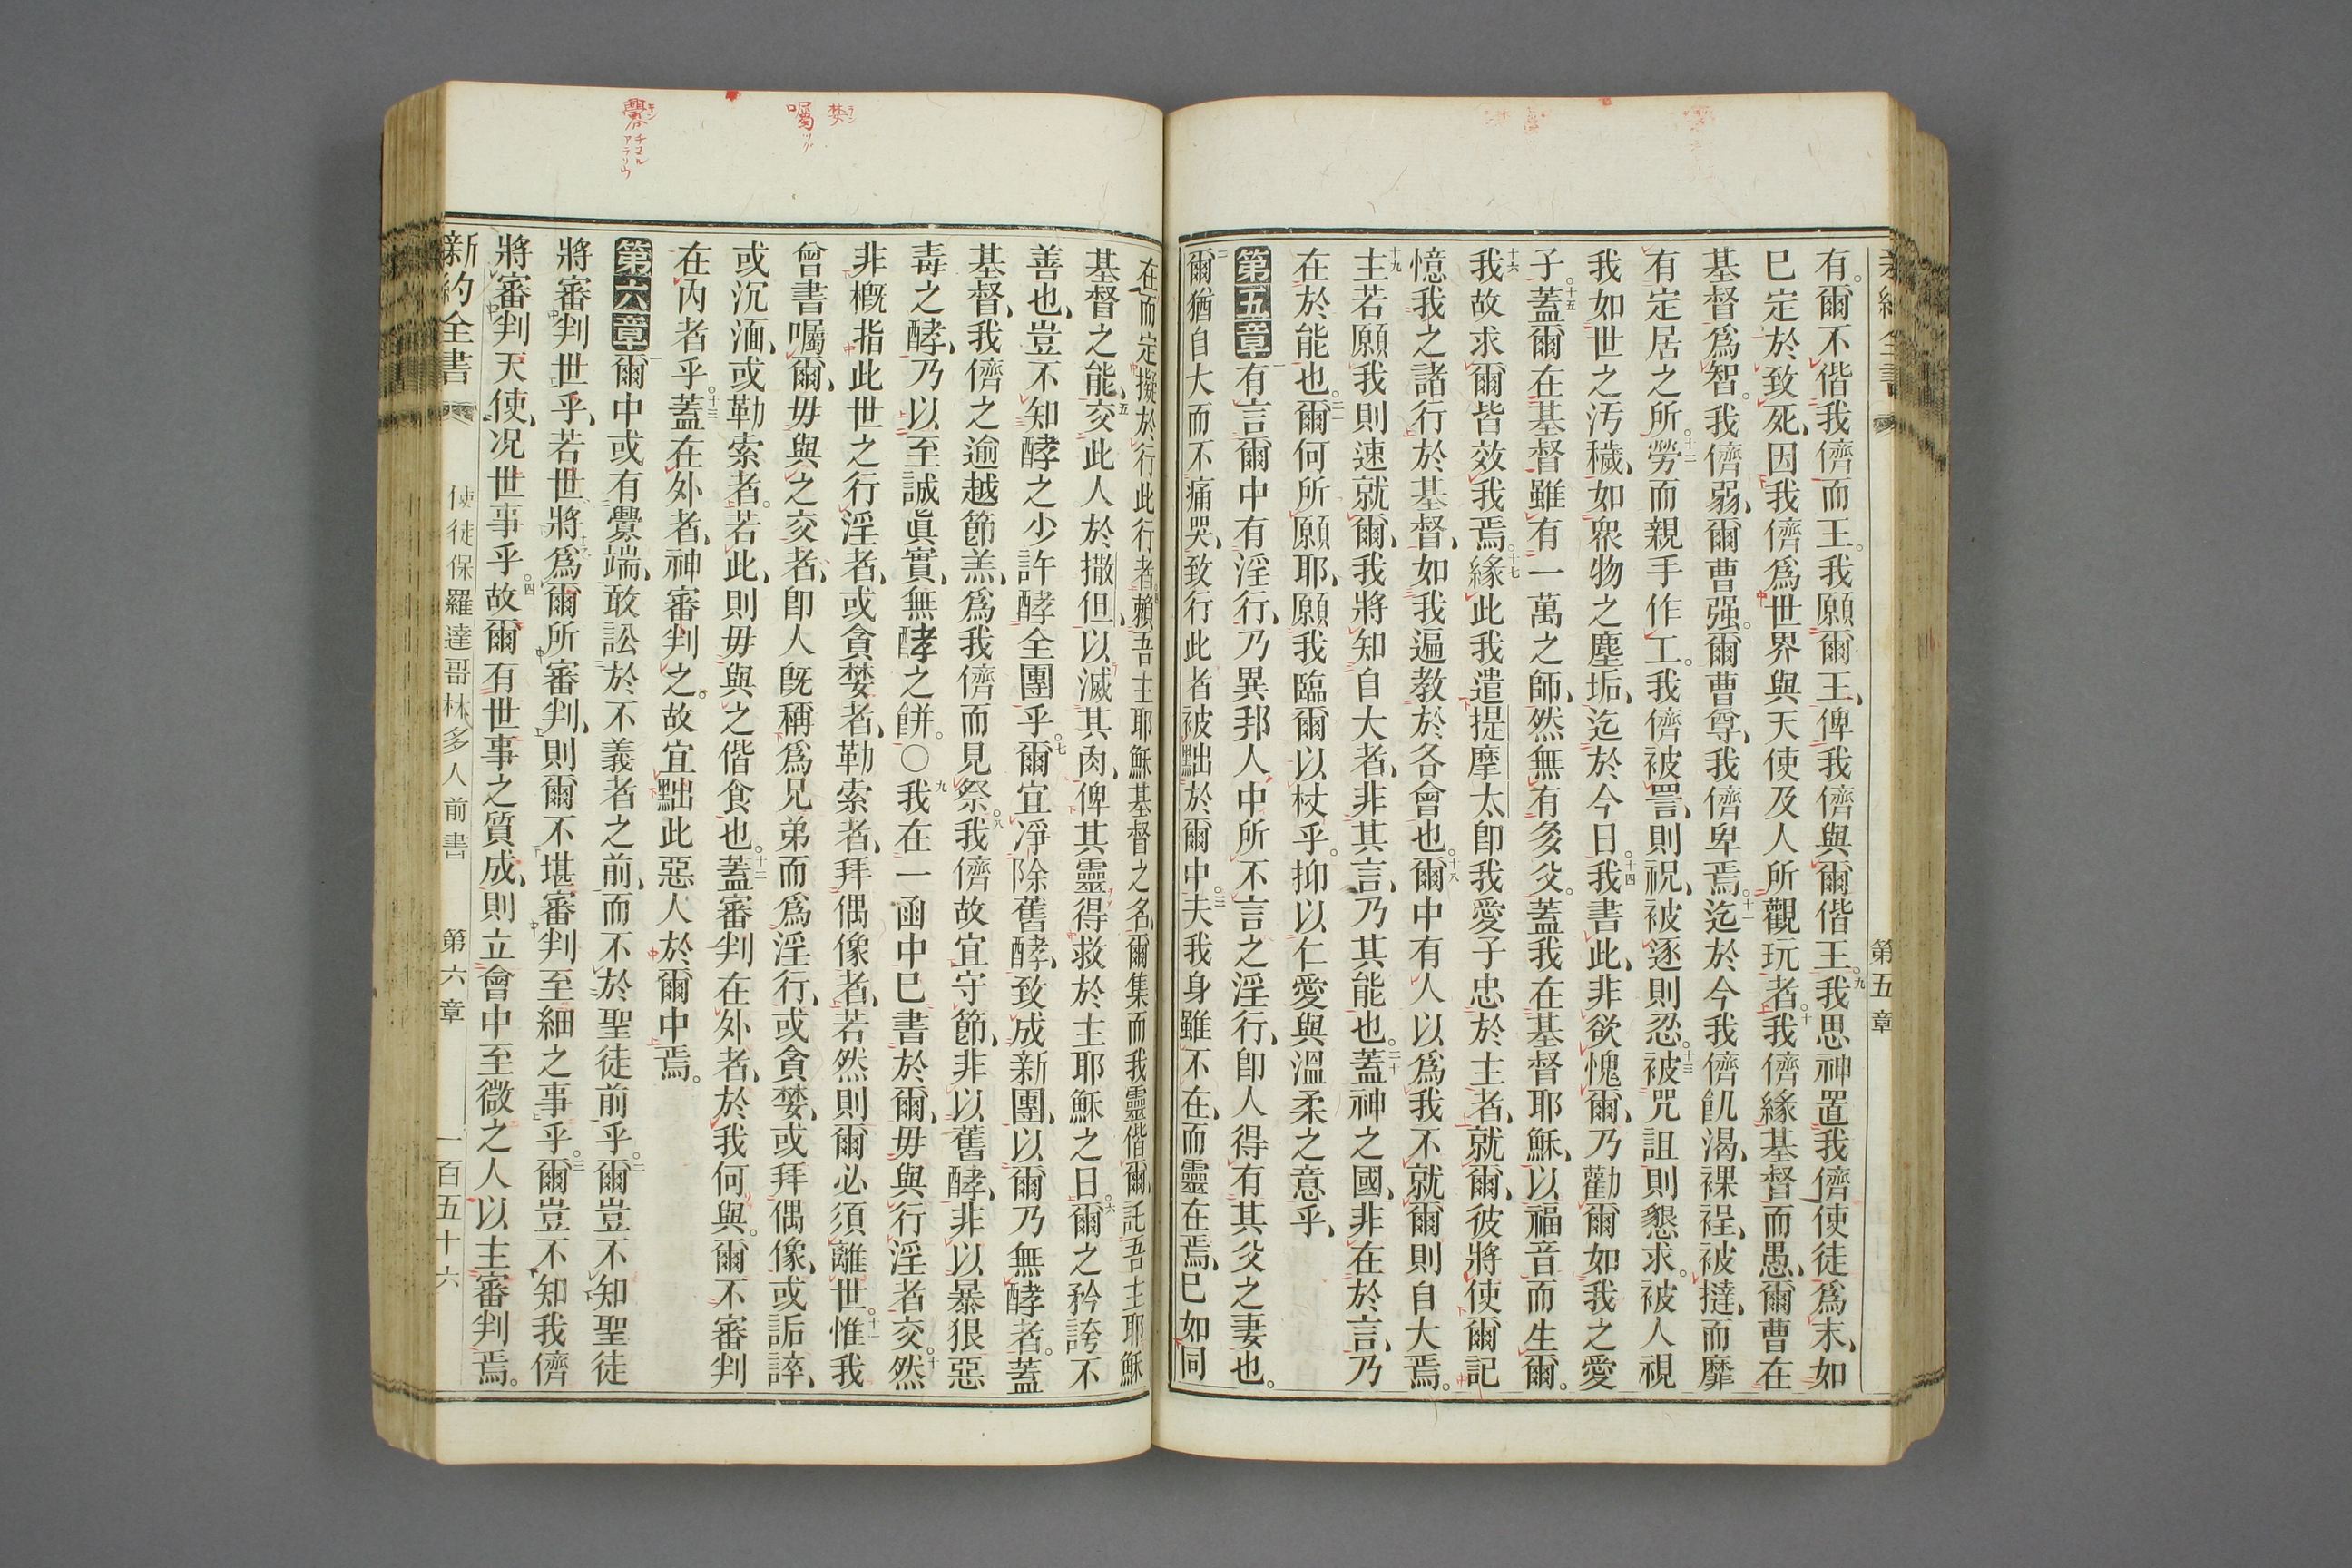 新約全書
第五章
有。爾不偕我儕而王。我願爾王、俾我儕與爾偕王。九我思神置我儕使徒爲末、如
已定於致死、因我儕爲世界與天使及人所觀玩者。十我儕緣基督而愚、爾曹在
基督爲智。我儕弱、爾曹强。爾曹尊、我儕卑焉。十一迄於今我儕飢渴、裸裎、被撻、而靡
有定居之所。十二勞而親手作工。我儕被詈、則祝、被逐則忍。十三被咒詛則懇求。被人視
我如世之汚穢、如衆物之塵垢、迄於今日。十四我書此、非欲愧爾、乃勸爾如我之愛
子。十五蓋爾在基督雖有一萬之師、然無有多父。蓋我在基督耶穌、以福音而生爾。
十六我故求爾皆效我焉。十七緣此我遣提摩太卽我愛子忠於主者、就爾、彼將使爾記
憶我之諸行於基督、如我遍教於各會也。十八爾中有人以爲我不就爾則自大焉。
十九主若願我則速就爾、我將知自大者、非其言、乃其能也。二十蓋神之國、非在於言、乃
在於能也。二一爾何所願耶、願我臨爾以杖乎。抑以仁愛與溫柔之意乎、
第五章 一有言爾中有淫行、乃異邦人中所不言之淫行、卽人得有其父之妻也。
二爾猶自大而不痛哭、致行此者被黜於爾中。三夫我身雖不在、而靈在焉、已如同
在而定擬於行此行者、四賴吾主耶穌基督之名、爾集而我靈偕爾、託吾主耶穌
基督之能、五交此人於撒但、以滅其肉、俾其靈得救於主耶穌之日。六爾之矜誇不
善也、豈不知酵之少許酵全團乎。七爾宜淨除舊酵、致成新團、以爾乃無酵者。蓋
基督、我儕之逾越節羔、爲我儕而見祭。八我儕故宜守節、非以舊酵、非以暴狠惡
毒之酵、乃以至誠眞實、無酵之餅。○九我在一函中已書於爾、毋與行淫者交。十然
非概指此世之行淫者、或貪婪者、勒索者、拜偶像者、若然則爾必須離世。十一惟我
曾書囑爾、毋與之交者、卽人旣稱爲兄弟而爲淫行、或貪婪、或拜偶像、或詬誶、
或沉湎、或勒索者。若此、則毋與之偕食也。十二蓋審判在外者、於我何與。爾不審判
在內者乎。十三蓋在外者、神審判之。故宜黜此惡人於爾中焉。
第六章 一爾中或有釁端、敢訟於不義者之前、而不於聖徒前乎。二爾豈不知聖徒
將審判世乎、若世將爲爾所審判、則爾不堪審判至細之事乎。三爾豈不知我儕
將審判天使、况世事乎。四故爾有世事之質成、則立會中至微之人以主審判焉。
新約全書
使徒保羅達哥林多人前書
第六章
一百五十六
婪 ラン
囑 ツグ
釁 キン
チヌル